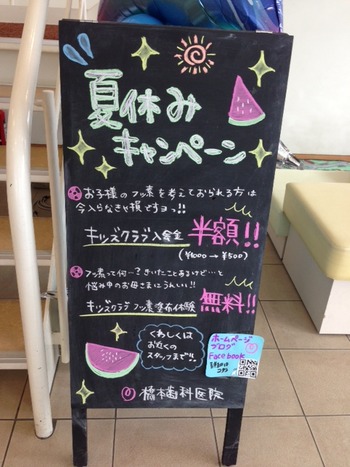 夏休み
キャンペーン
お子様のフッ素を考えておられる方は
今入らなきゃ損ですヨっ!!
キッズクラブ入会金 半額!!
(¥1000→¥500)
フッ素って何ー?きいたことあるけど…と
悩み中のお母さまにうれしい!!
キッズクラブ フッ素塗布体験 無料!!
くわしくは
お近くの
スタッフまで!!
ホームページ
ブログ
Facebook
橋本歯科医院